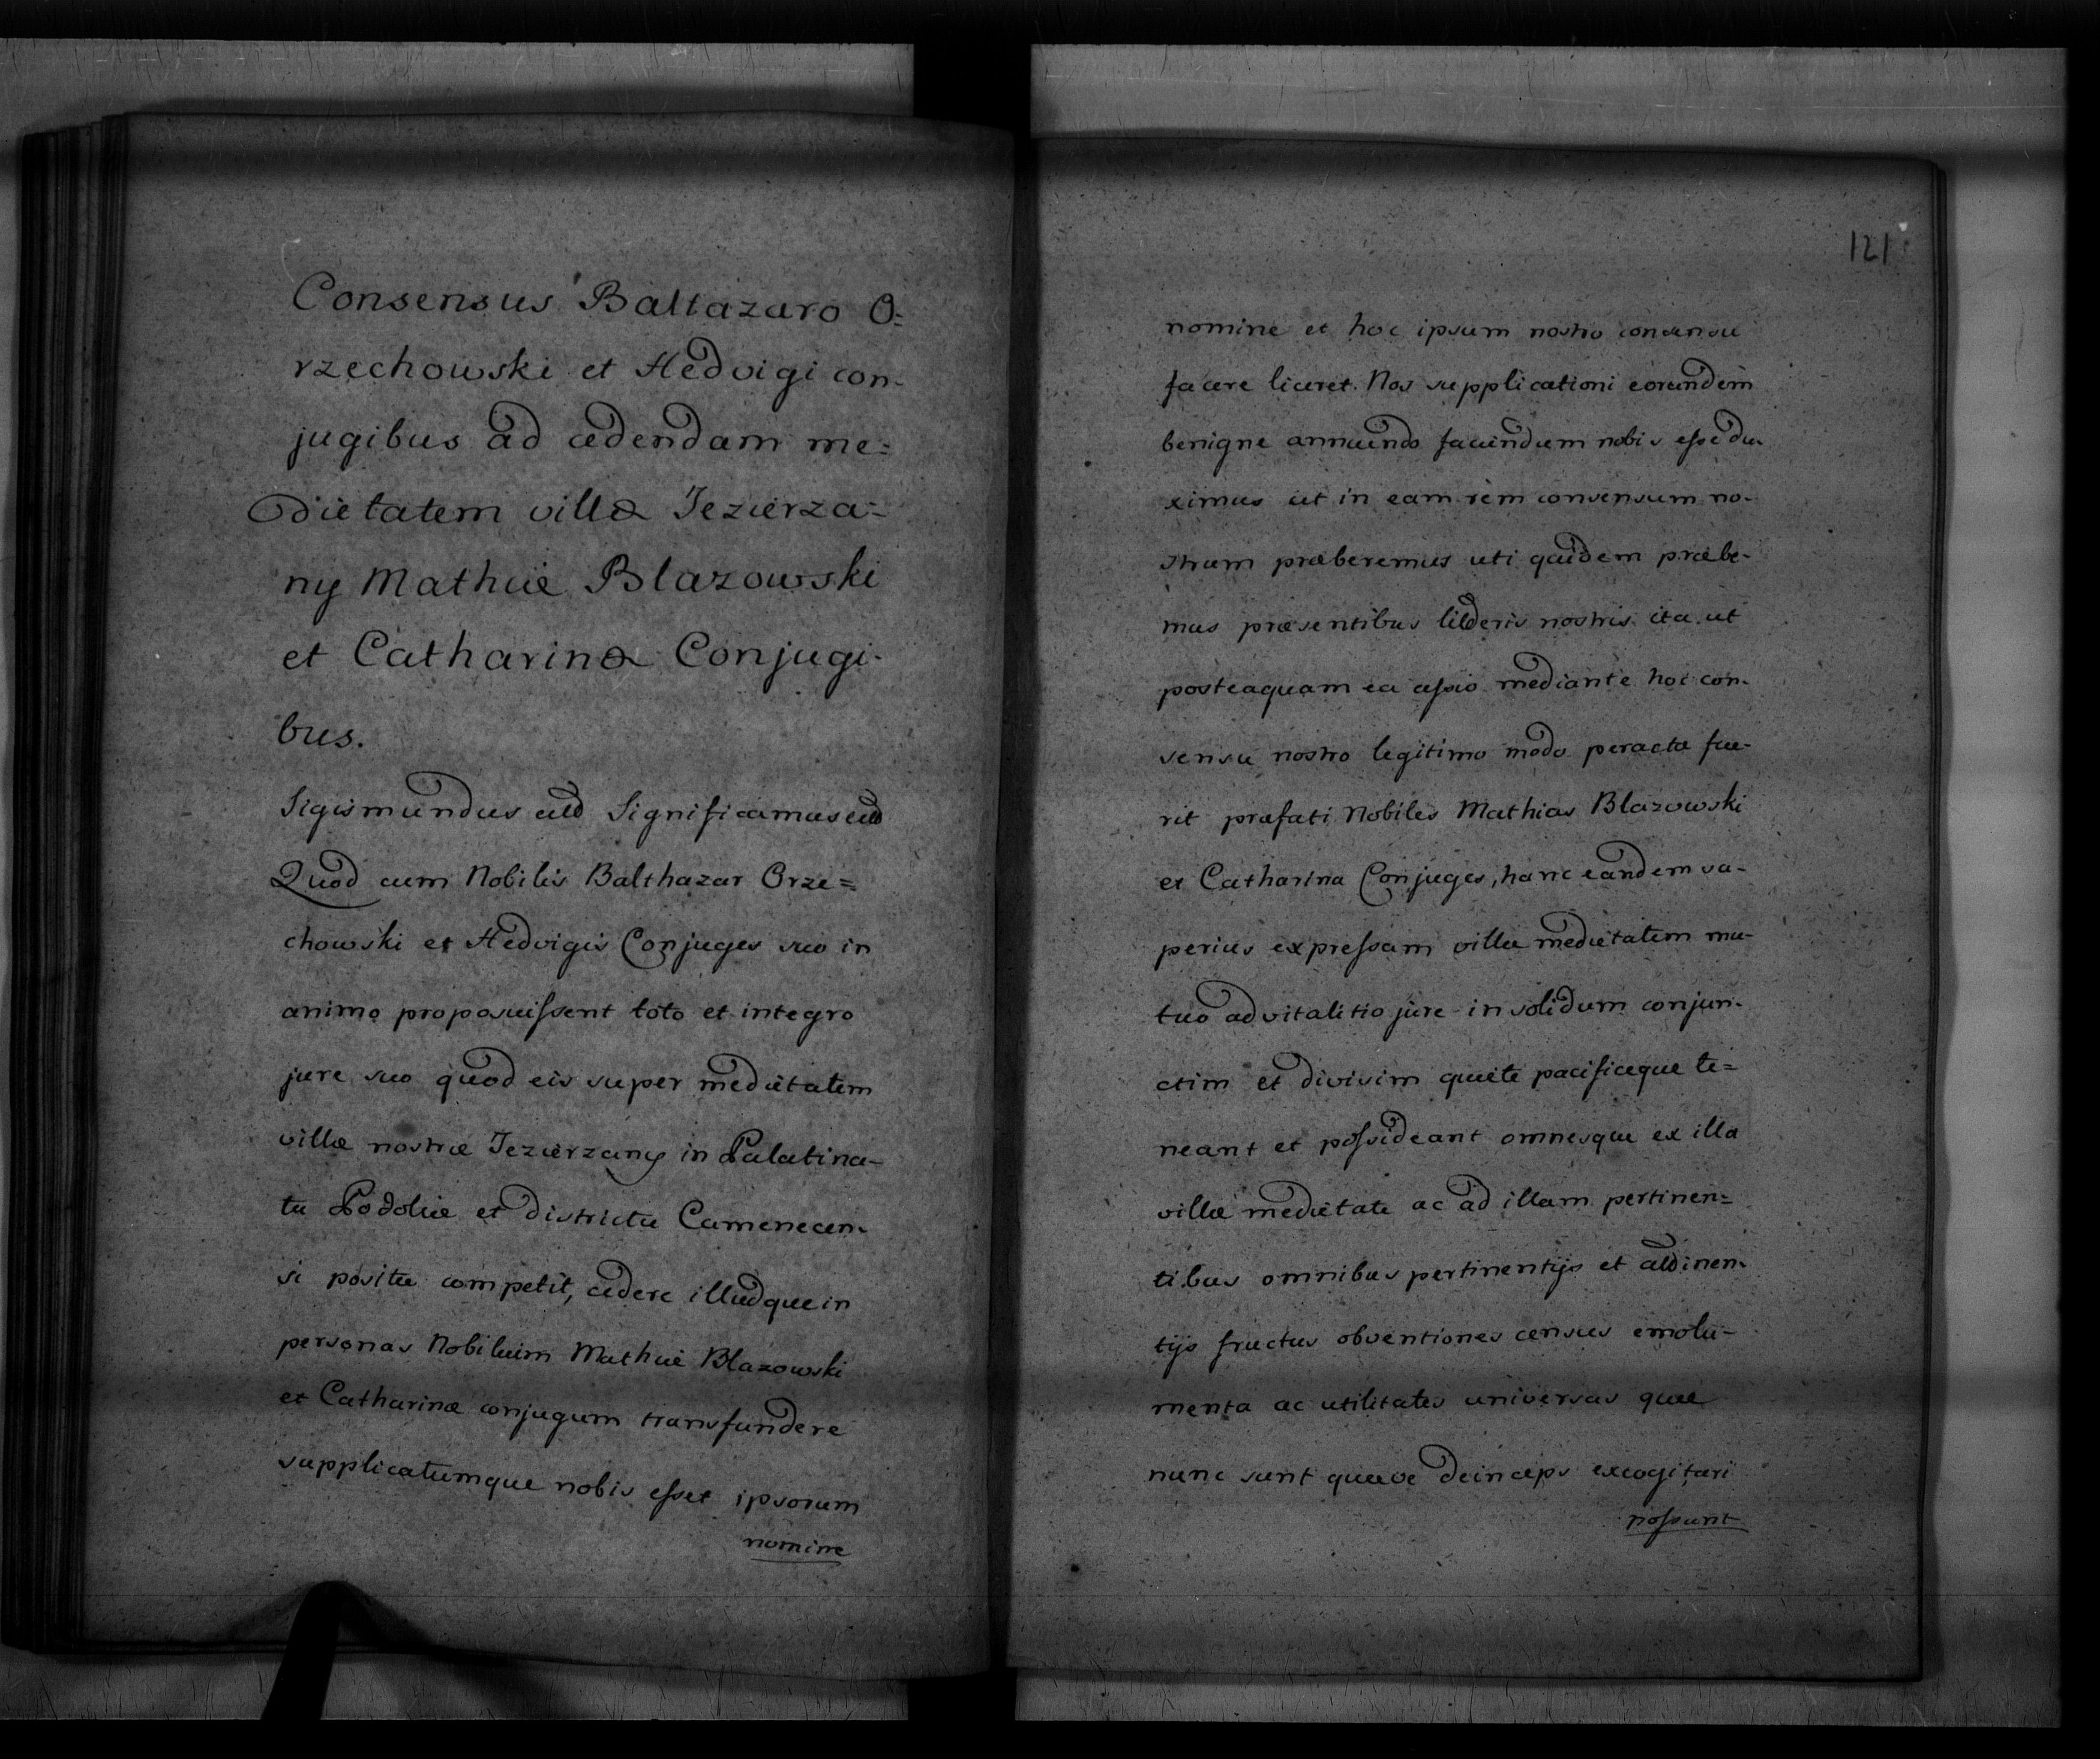 Consensus Baltazaro O=
rzechowski et Hedvigi con-
jugibus ad cedendam me=
dietatem villæ Jezierza=
ny Mathiæ Blazowski
et Catharinæ Conjugi-
bus.
Sigismundus etc Significamus etc
Quod cum Nobilis Balthazar Orze=
chowski et Hedvigis Conjuges suo in
animo proposuissent toto et integro
jure suo quod eis super medietatem
villæ nostræ Jezierzany in Palatina-
tu Podoliæ et districtu Camenecen-
si positæ competit, cedere illudque in
personas Nobilium Mathiæ Blazowski
et Catharinæ conjugum transfundere
supplicatumque nobis esset ipsorum
nomine
121
nomine et hoc ipsum nostro consensu
facere liceret. Nos supplicationi eorundem
benigne annuendo faciendum nobis esse du-
ximus ut in eam rem consensum no-
strum præberemus uti quidem præbe-
mus præsentibus litteris nostris ita ut
posteaquam ea cessio mediante hoc con-
sensu nostro legitimo modo peracta fue-
rit præfati Nobiles Mathias Blazowski
et Catharina Conjuges, hanc eandem su-
perius expressam villæ medietatem mu-
tuo advitalitio jure in solidum conjun-
ctim et divisim quiete pacificeque te=
neant et possideant omnesque ex illa
villæ medietate ac ad illam pertinen=
tibus omnibus pertinentijs et attinen-
tijs fructus obventiones census emolu-
menta ac utilitates universas quæ
nunc sunt quæve deinceps excogitari
possunt